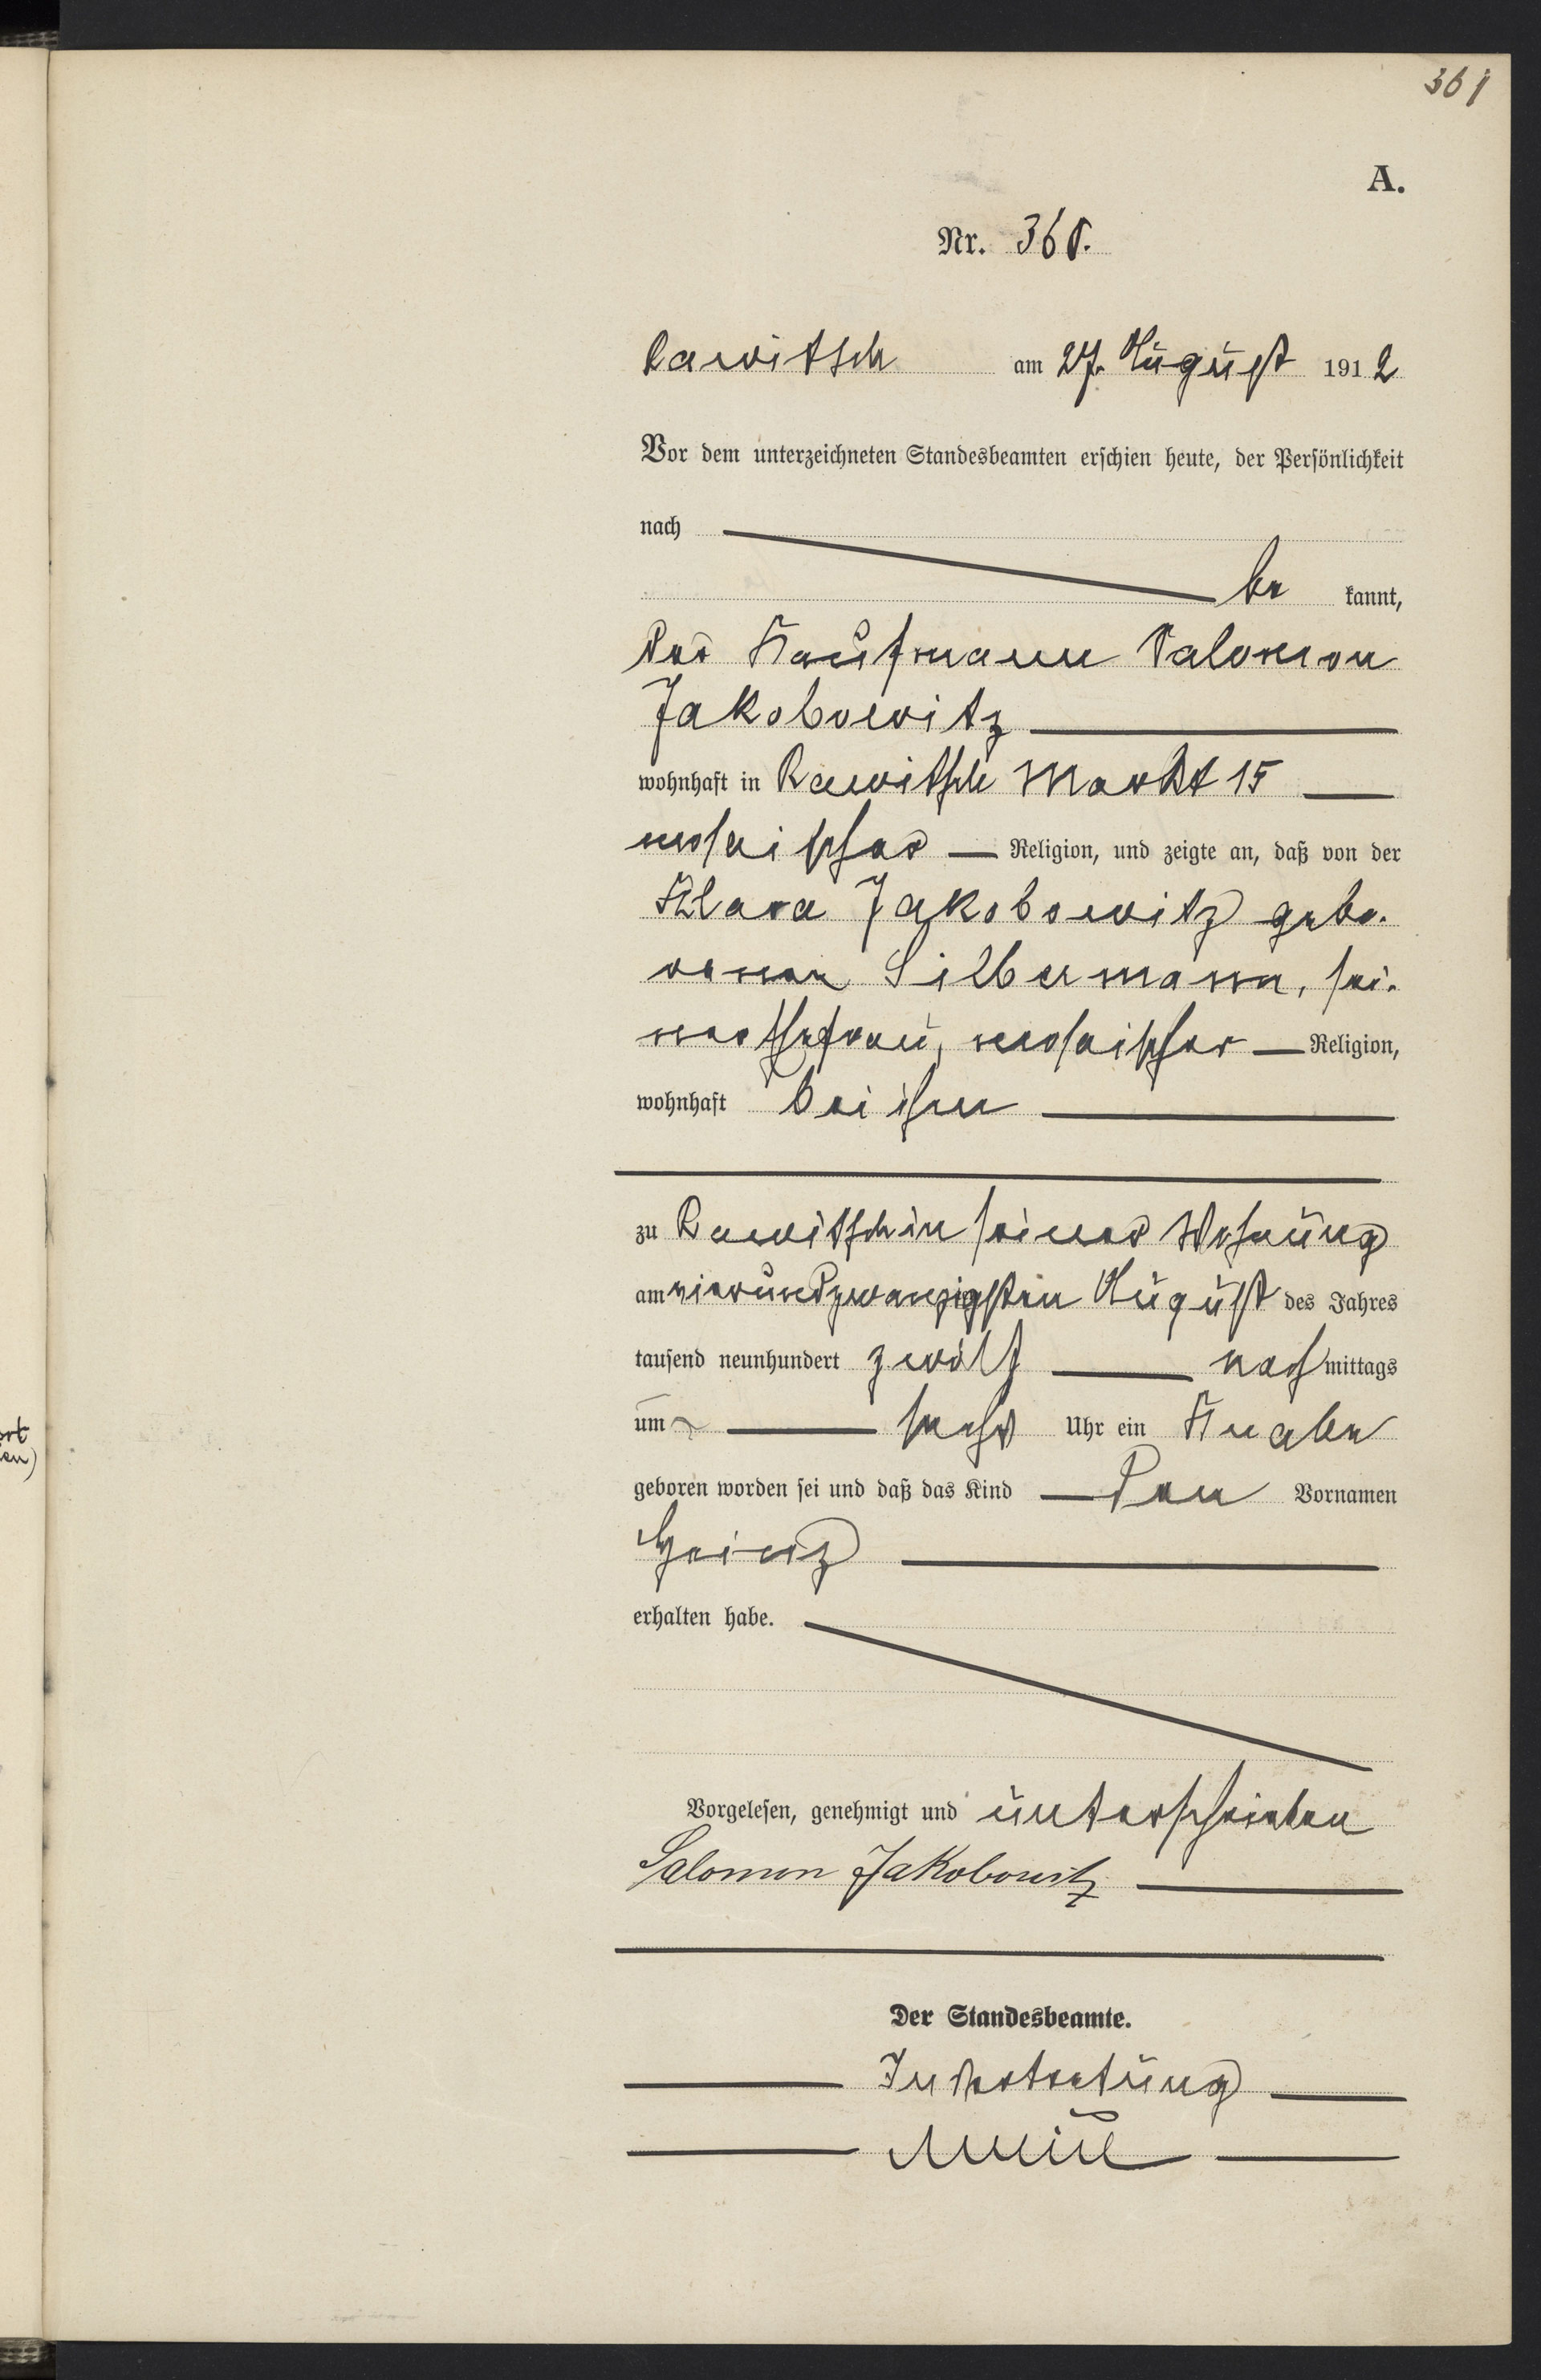 361
A.
Nr. 360.
Rawitsch am 27. August 1912
Vor dem unterzeichneten Standesbeamten erschien heute, der Persönlichkeit
nach
be kannt,
der Kaufmann Salomon
Jakobowitz
wohnhaft in Rawitsch Markt 15
mosaischer Religion, und zeigte an, daß von der
Klara Jakobowitz gebo-
renen Silbermann, sei-
ner Ehefrau, mosaischer Religion,
wohnhaft bei ihm
zu Rawitsch in seiner Wohnung
am vierundzwanzigsten August des Jahres
tausend neunhundert zwölf nachmittags
um sechs Uhr ein Knabe
geboren worden sei und daß das Kind den Vornamen
Heinz
erhalten habe.
Vorgelesen, genehmigt und unterschrieben
Salomon Jakobowitz
Der Standesbeamte.
In Vertretung